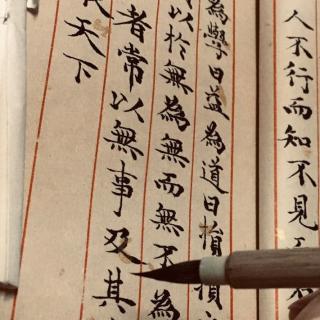 人不行而知不見
為學日益為道日損損
以於無為無而無不為
者常以無事及其
天下